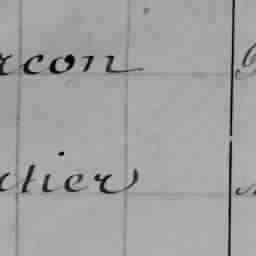 rcon
tier